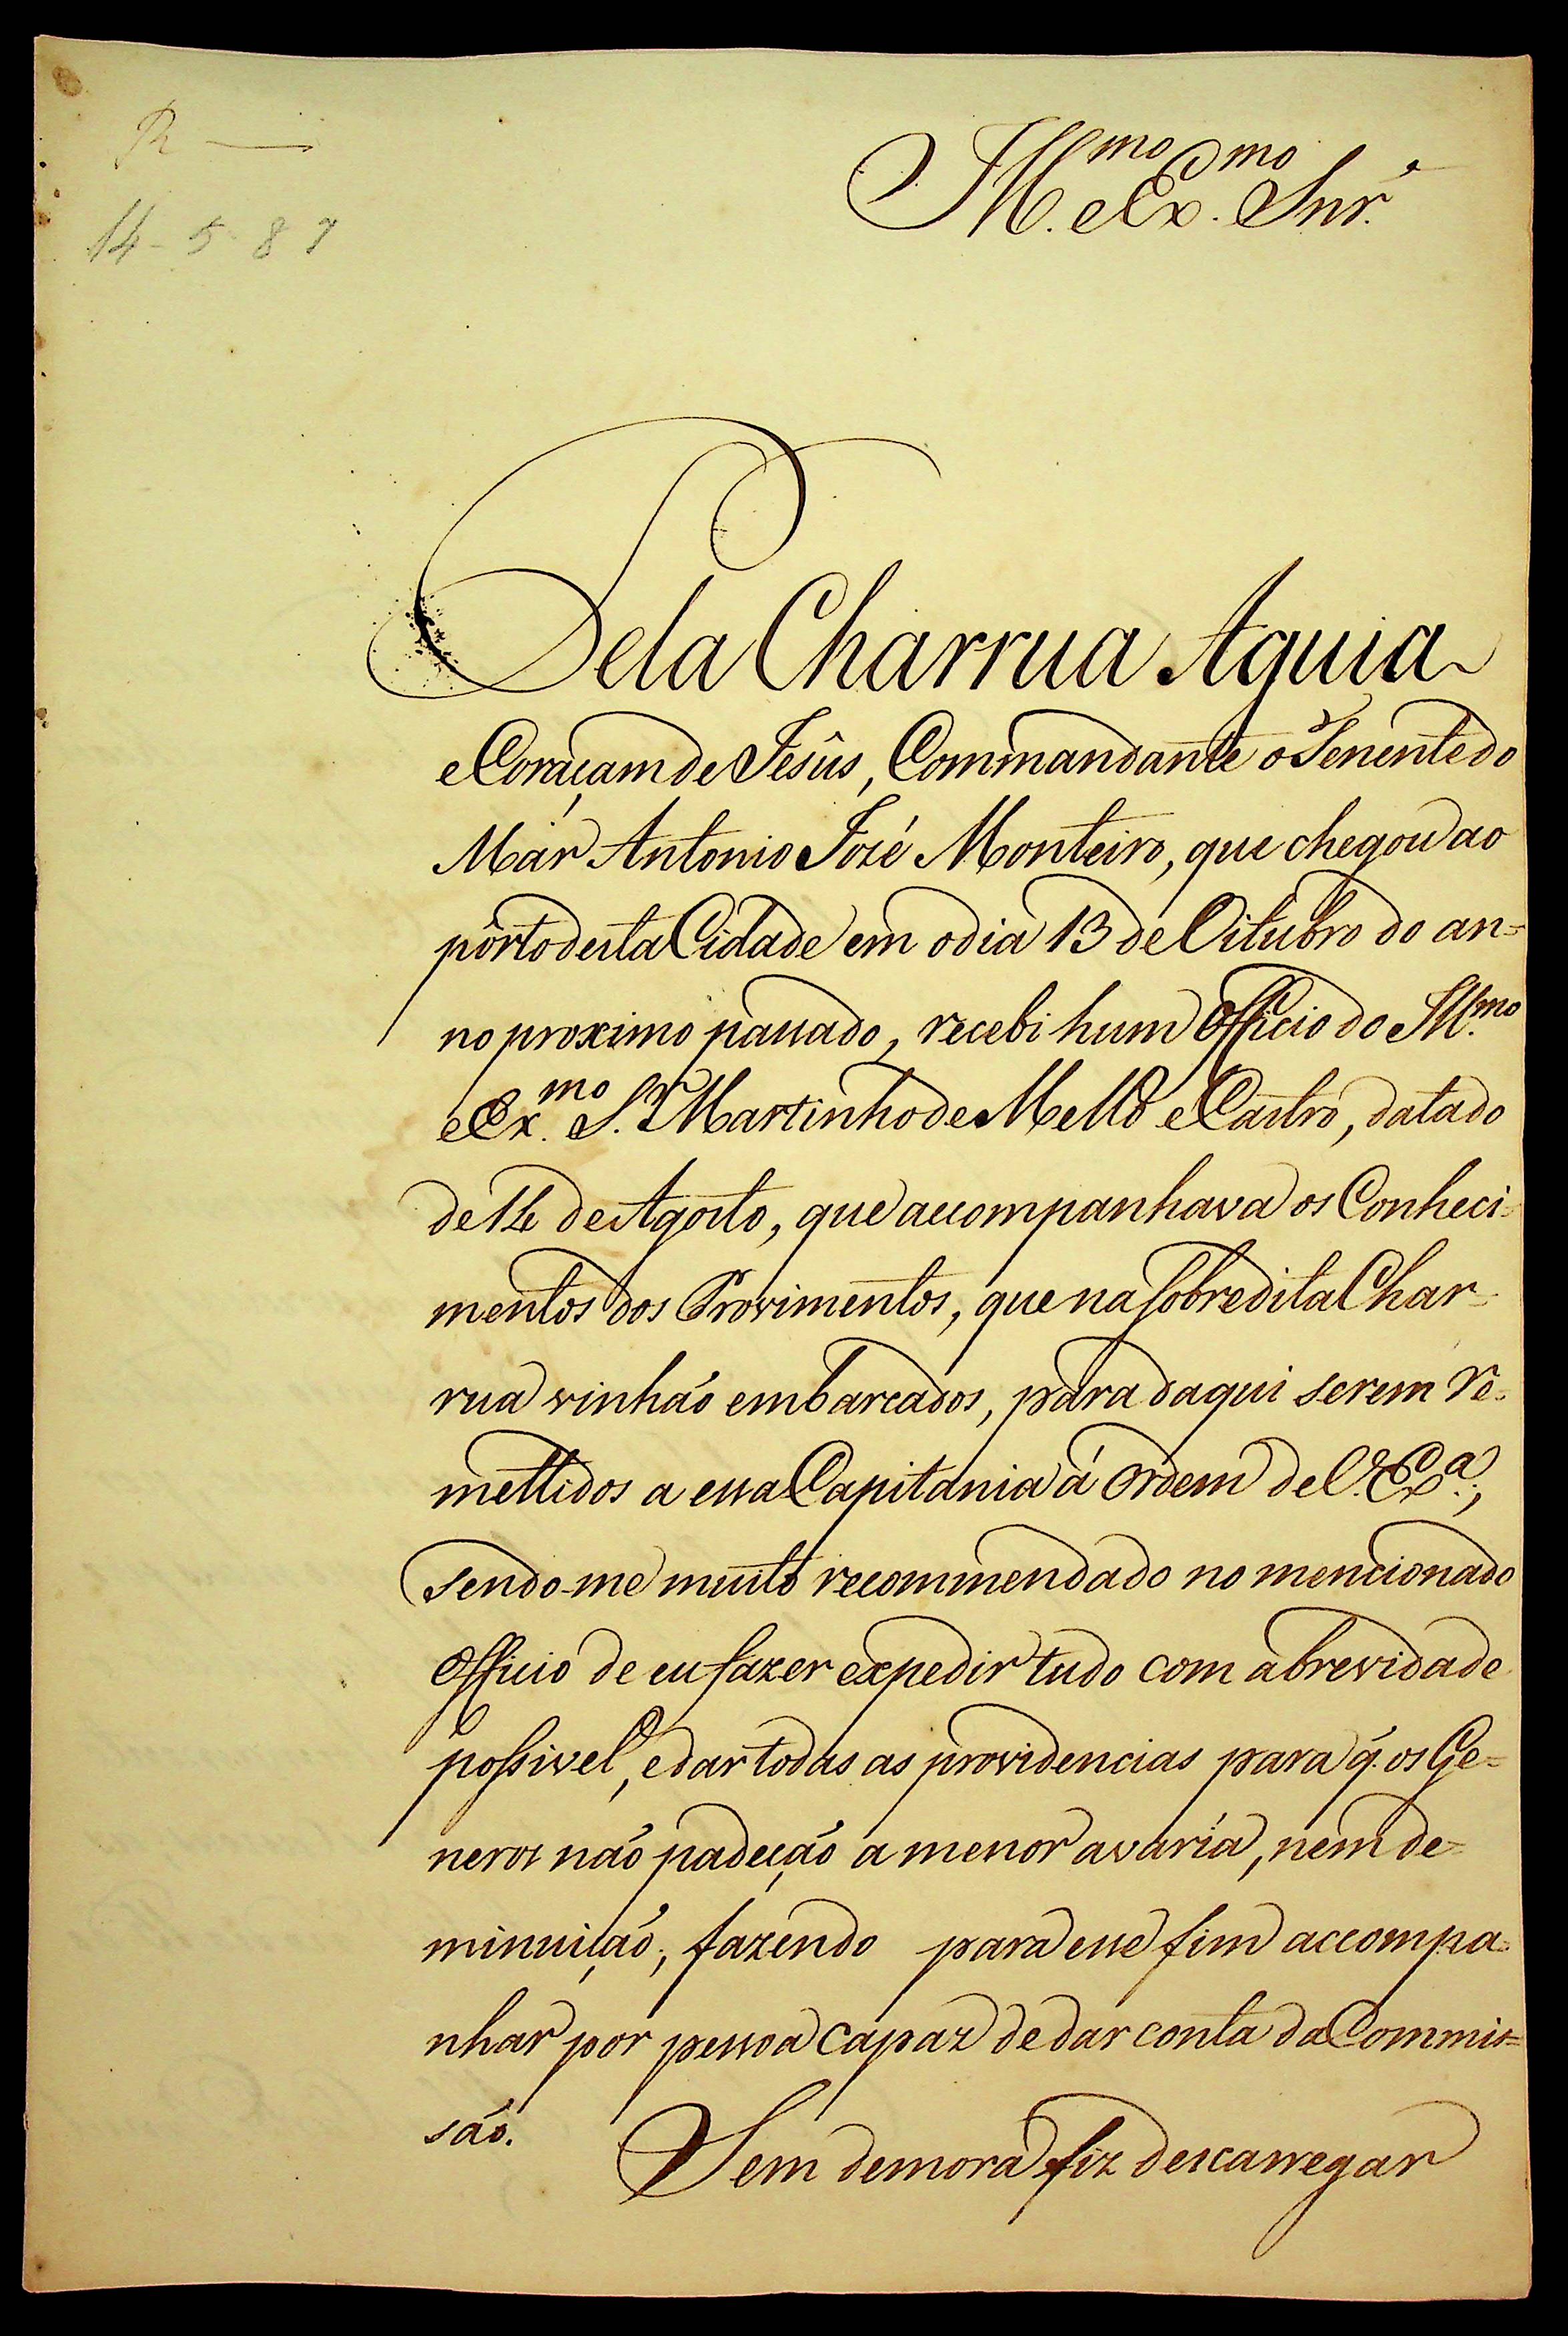 R —
14-5-87
Ill.mo e Ex.mo Snr.
Pela Charrua Aguia
e Coraçam de Jesûs, Commandante o Tenente do
Már Antonio Jozé Monteiro, que chegou ao
pôrto desta Cidade em o dia 13 de Oitubro do an=
no proximo passado, recebi hum Officio do Ill.mo
e Ex.mo S.r Martinho de Mello e Castro, datado
de 14 de Agosto, que accompanhava os Conheci=
mentos dos Provimentos, que na sobredita Char=
rua vinháo embarcados, para daqui serem re=
mettidos a essa Capitania á Ordem de V. Ex.a;
sendo-me muito recommendado no mencionado
Officio de eu fazer expedir tudo com a brevidade
possivel, e dar todas as providencias para q̃. os Ge=
neros náo padeçáo a menor avaría, nem de=
minuiçáo; fazendo para esse fim accompa=
nhar por pessoa capaz de dar conta da Commis=
sáo.
Sem demora fiz descarregar